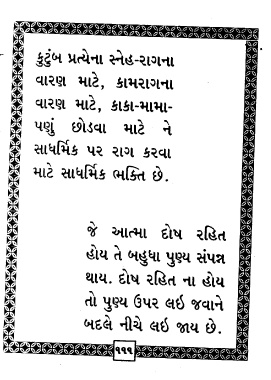 કુટુંબ પ્રત્યેના સ્નેહ-રાગના
વારણ માટે, કામરાગના
વારણ માટે, કાકા-મામા-
પણું છોડવા માટે ને
સાધર્મિક પર રાગ કરવા
માટે સાધર્મિક ભક્તિ છે.
જે આત્મા દોષ રહિત
હોય તે બહુધા પુણ્ય સંપન્ન
થાય. દોષ રહિત ના હોય
તો પુણ્ય ઉપર લઇ જવાને
બદલે નીચે લઇ જાય છે.
૧૧૧